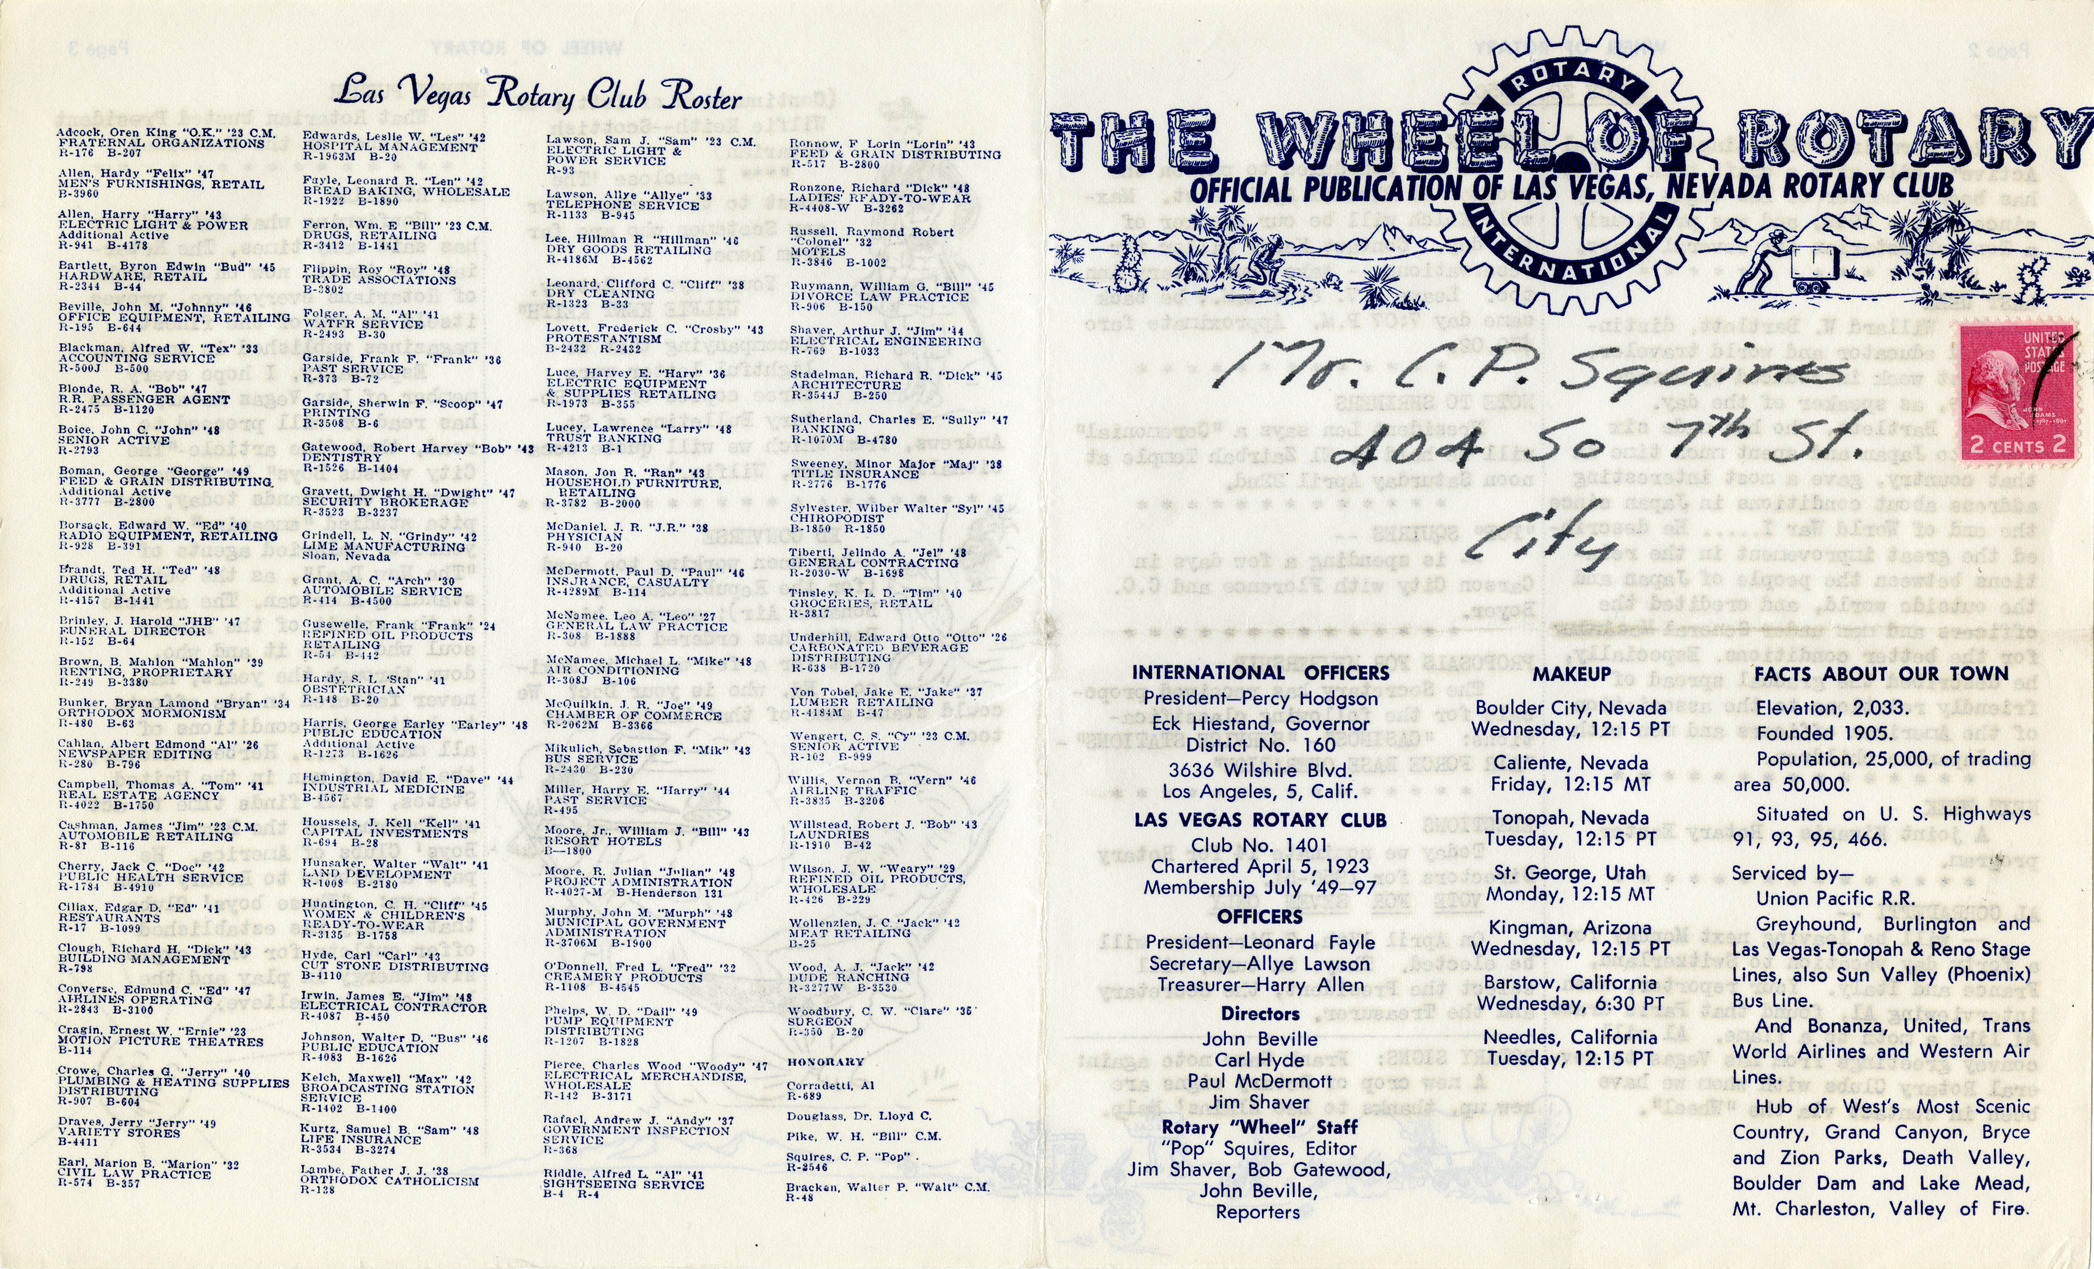 Las Vegas Rotary Club Roster
Adcock, Oren King "O.K." '23 C.M.
FRATERNAL ORGANIZATIONS
R-176 B-207
Allen, Hardy "Felix" '47
MEN'S FURNISHINGS, RETAIL
B-3960
Allen, Harry "Harry" '43
ELECTRIC LIGHT & POWER
Additional Active
R-941 B-4178
Bartlett, Byron Edwin "Bud" '45
HARDWARE, RETAIL
R-2344 B-44
Beville, John M. "Johnny" '46
OFFICE EQUIPMENT, RETAILING
R-195 B-644
Blackman, Alfred W. "Tex" '33
ACCOUNTING SERVICE
R-500J B-500
Blonde, R. A. "Bob" '47
R.R. PASSENGER AGENT
R-2475 B-1120
Boice, John C. "John" '48
SENIOR ACTIVE
R-2793
Boman, George "George" '49
FEED & GRAIN DISTRIBUTING
Additional Active
R-3777 B-2800
Borsack, Edward W. "Ed" '40
RADIO EQUIPMENT, RETAILING
R-928 B-391
Brandt, Ted H. "Ted" '48
DRUGS, RETAIL
Additional Active
R-4157 B-1441
Brinley, J. Harold "JHB" '47
FUNERAL DIRECTOR
R-152 B-64
Brown, B. Mahlon "Mahlon" '39
RENTING, PROPRIETARY
R-249 B-3380
Bunker, Bryan Lamond "Bryan" '34
ORTHODOX MORMONISM
R-480 B-63
Cahlan, Albert Edmond "Al" '26
NEWSPAPER EDITING
R-280 B-796
Campbell, Thomas A. "Tom" '41
REAL ESTATE AGENCY
R-4022 B-1750
Cashman, James "Jim" '23 C.M.
AUTOMOBILE RETAILING
R-81 B-116
Cherry, Jack C. "Doc" '42
PUBLIC HEALTH SERVICE
R-1784 B-4910
Ciliax, Edgar D. "Ed" '41
RESTAURANTS
R-17 B-1099
Clough, Richard H. "Dick" '43
BUILDING MANAGEMENT
R-798
Converse, Edmund C. "Ed" '47
AIRLINES OPERATING
R-2843 B-3100
Cragin, Ernest W. "Ernie" '23
MOTION PICTURE THEATRES
B-114
Crowe, Charles G. "Jerry" '40
PLUMBING & HEATING SUPPLIES
DISTRIBUTING
R-907 B-604
Draves, Jerry "Jerry" '49
VARIETY STORES
B-4411
Earl, Marion B. "Marion" '32
CIVIL LAW PRACTICE
R-574 B-357
Edwards, Leslie W. "Les" '42
HOSPITAL MANAGEMENT
R-1963M B-20
Fayle, Leonard R. "Len" '42
BREAD BAKING, WHOLESALE
R-1922 B-1890
Ferron, Wm. E. "Bill" '23 C.M.
DRUGS, RETAILING
R-3412 B-1441
Flippin, Roy "Roy" '48
TRADE ASSOCIATIONS
B-3802
Folger, A. M. "Al" '41
WATER SERVICE
R-2493 B-30
Garside, Frank F. "Frank" '36
PAST SERVICE
R-373 B-72
Garside, Sherwin F. "Scoop" '47
PRINTING
R-3508 B-6
Gatewood, Robert Harvey "Bob" '43
DENTISTRY
R-1526 B-1404
Gravett, Dwight H. "Dwight" '47
SECURITY BROKERAGE
R-3523 B-3237
Grindell, L. N. "Grindy" '42
LIME MANUFACTURING
Sloan, Nevada
Grant, A. C. "Arch" '30
AUTOMOBILE SERVICE
R-414 B-4500
Gusewelle, Frank "Frank" '24
REFINED OIL PRODUCTS
RETAILING
R-54 B-442
Hardy, S. L. "Stan" '41
OBSTETRICIAN
R-148 B-20
Harris, George Earley "Earley" '48
PUBLIC EDUCATION
Additional Active
R-1273 B-1626
Hemington, David E. "Dave" '44
INDUSTRIAL MEDICINE
B-4567
Houssels, J. Kell "Kell" '41
CAPITAL INVESTMENTS
R-694 B-28
Hunsaker, Walter "Walt" '41
LAND DEVELOPMENT
R-1008 B-2180
Huntington, C. H. "Cliff" '45
WOMEN & CHILDREN'S
READY-TO-WEAR
R-3135 B-1758
Hyde, Carl "Carl" '43
CUT STONE DISTRIBUTING
B-4110
Irwin, James E. "Jim" '48
ELECTRICAL CONTRACTOR
R-4087 B-450
Johnson, Walter D. "Bus" '46
PUBLIC EDUCATION
R-4083 B-1626
Kelch, Maxwell "Max" '42
BROADCASTING STATION
SERVICE
R-1402 B-1400
Kurtz, Samuel B. "Sam" '48
LIFE INSURANCE
R-3534 B-3274
Lambe, Father J. J. '38
ORTHODOX CATHOLICISM
R-138
Lawson, Sam J. "Sam" '23 C.M.
ELECTRIC LIGHT &
POWER SERVICE
R-93
Lawson, Allye "Allye" '33
TELEPHONE SERVICE
R-1133 B-945
Lee, Hillman R "Hillman" '46
DRY GOODS RETAILING
R-4186M B-4562
Leonard, Clifford C. "Cliff" '38
DRY CLEANING
R-1323 B-33
Lovett, Frederick C. "Crosby" '43
PROTESTANTISM
B-2432 R-2432
Luce, Harvey E. "Harv" '36
ELECTRIC EQUIPMENT
& SUPPLIES RETAILING
R-1973 B-355
Lucey, Lawrence "Larry" '48
TRUST BANKING
R-4213 B-1
Mason, Jon R. "Ran" '43
HOUSEHOLD FURNITURE,
RETAILING
R-3782 B-2000
McDaniel, J. R. "J.R." '38
PHYSICIAN
R-940 B-20
McDermott, Paul D. "Paul" '46
INSURANCE, CASUALTY
R-4289M B-114
McNamee, Leo A. "Leo" '27
GENERAL LAW PRACTICE
R-308 B-1888
McNamee, Michael L. "Mike" '48
AIR CONDITIONING
R-308J B-106
McQuilkin, J. R. "Joe" '49
CHAMBER OF COMMERCE
R-2062M B-3366
Mikulich, Sebastion F. "Mik" '43
BUS SERVICE
R-2430 B-230
Miller, Harry E. "Harry" '44
PAST SERVICE
R-495
Moore, Jr., William J. "Bill" '43
RESORT HOTELS
B—1800
Moore, R. Julian "Julian" '48
PROJECT ADMINISTRATION
R-4027-M B-Henderson 131
Murphy, John M. "Murph" '48
MUNICIPAL GOVERNMENT
ADMINISTRATION
R-3706M B-1900
O'Donnell, Fred L. "Fred" '32
CREAMERY PRODUCTS
R-1108 B-4545
Phelps, W. D. "Dall" '49
PUMP EQUIPMENT
DISTRIBUTING
R-1207 B-1828
Pierce, Charles Wood "Woody" '47
ELECTRICAL MERCHANDISE,
WHOLESALE
R-142 B-3171
Rafael, Andrew J. "Andy" '37
GOVERNMENT INSPECTION
SERVICE
R-368
Riddle, Alfred L. "Al" '41
SIGHTSEEING SERVICE
B-4 R-4
Ronnow, F Lorin "Lorin" '43
FEED & GRAIN DISTRIBUTING
R-517 B-2800
Ronzone, Richard "Dick" '48
LADIES' READY-TO-WEAR
R-4408-W B-3262
Russell, Raymond Robert
"Colonel" '32
MOTELS
R-3846 B-1002
Ruymann, William G. "Bill" '45
DIVORCE LAW PRACTICE
R-906 B-150
Shaver, Arthur J. "Jim" '44
ELECTRICAL ENGINEERING
R-769 B-1033
Stadelman, Richard R. "Dick" '45
ARCHITECTURE
R-3544J B-250
Sutherland, Charles E. "Sully" '47
BANKING
R-1070M B-4780
Sweeney, Minor Major "Maj" '38
TITLE INSURANCE
R-2776 B-1776
Sylvester, Wilber Walter "Syl" '45
CHIROPODIST
B-1850 R-1850
Tiberti, Jelindo A. "Jel" '48
GENERAL CONTRACTING
R-2030-W B-1698
Tinsley, K. L. D. "Tim" '40
GROCERIES, RETAIL
R-3817
Underhill, Edward Otto "Otto" '26
CARBONATED BEVERAGE
DISTRIBUTING
R-638 B-1720
Von Tobel, Jake E. "Jake" '37
LUMBER RETAILING
R-4184M B-47
Wengert, C. S. "Cy" '23 C.M.
SENIOR ACTIVE
R-102 B-999
Willis, Vernon B. "Vern" '46
AIRLINE TRAFFIC
R-3835 B-3206
Willstead, Robert J. "Bob" '43
LAUNDRIES
R-1910 B-42
Wilson, J. W. "Weary" '29
REFINED OIL PRODUCTS,
WHOLESALE
R-426 B-229
Wollenzien, J. C. "Jack" '42
MEAT RETAILING
B-25
Wood, A. J. "Jack" '42
DUDE RANCHING
R-3277W B-3530
Woodbury, C. W. "Clare" '35
SURGEON
R-350 B-20
HONORARY
Corradetti, Al
R-689
Douglass, Dr. Lloyd C.
Pike, W. H. "Bill" C.M.
Squires, C. P. "Pop"
R-2546
Bracken, Walter P. "Walt" C.M.
R-48
ROTARY
THE WHEEL OF ROTARY
OFFICIAL PUBLICATION OF LAS VEGAS, NEVADA ROTARY CLUB
INTERNATIONAL
UNITED
STATES
POSTAGE
JOHN
ADAMS
2 CENTS 2
Mr. C. P. Squires
404 So 7th St.
City
INTERNATIONAL OFFICERS
President—Percy Hodgson
Eck Hiestand, Governor
District No. 160
3636 Wilshire Blvd.
Los Angeles, 5, Calif.
LAS VEGAS ROTARY CLUB
Club No. 1401
Chartered April 5, 1923
Membership July '49—97
OFFICERS
President—Leonard Fayle
Secretary—Allye Lawson
Treasurer—Harry Allen
Directors
John Beville
Carl Hyde
Paul McDermott
Jim Shaver
Rotary "Wheel" Staff
"Pop" Squires, Editor
Jim Shaver, Bob Gatewood,
John Beville,
Reporters
MAKEUP
Boulder City, Nevada
Wednesday, 12:15 PT
Caliente, Nevada
Friday, 12:15 MT
Tonopah, Nevada
Tuesday, 12:15 PT
St. George, Utah
Monday, 12:15 MT
Kingman, Arizona
Wednesday, 12:15 PT
Barstow, California
Wednesday, 6:30 PT
Needles, California
Tuesday, 12:15 PT
FACTS ABOUT OUR TOWN
Elevation, 2,033.
Founded 1905.
Population, 25,000, of trading
area 50,000.
Situated on U. S. Highways
91, 93, 95, 466.
Serviced by—
Union Pacific R.R.
Greyhound, Burlington and
Las Vegas-Tonopah & Reno Stage
Lines, also Sun Valley (Phoenix)
Bus Line.
And Bonanza, United, Trans
World Airlines and Western Air
Lines.
Hub of West's Most Scenic
Country, Grand Canyon, Bryce
and Zion Parks, Death Valley,
Boulder Dam and Lake Mead,
Mt. Charleston, Valley of Fire.